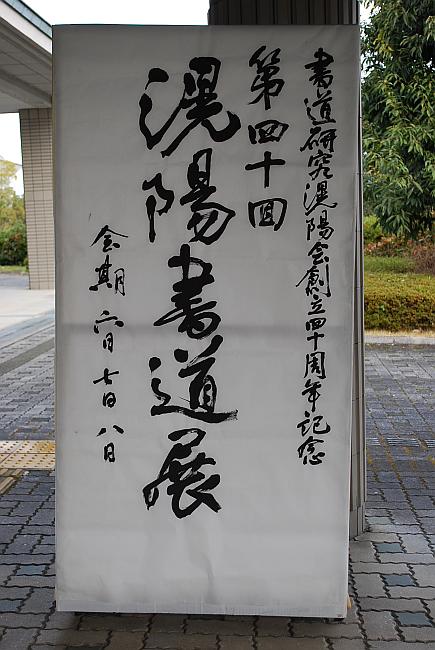 書道研究滉陽会創立四十周年記念
第四十回
滉陽書道展
会期 六日 七日 八日